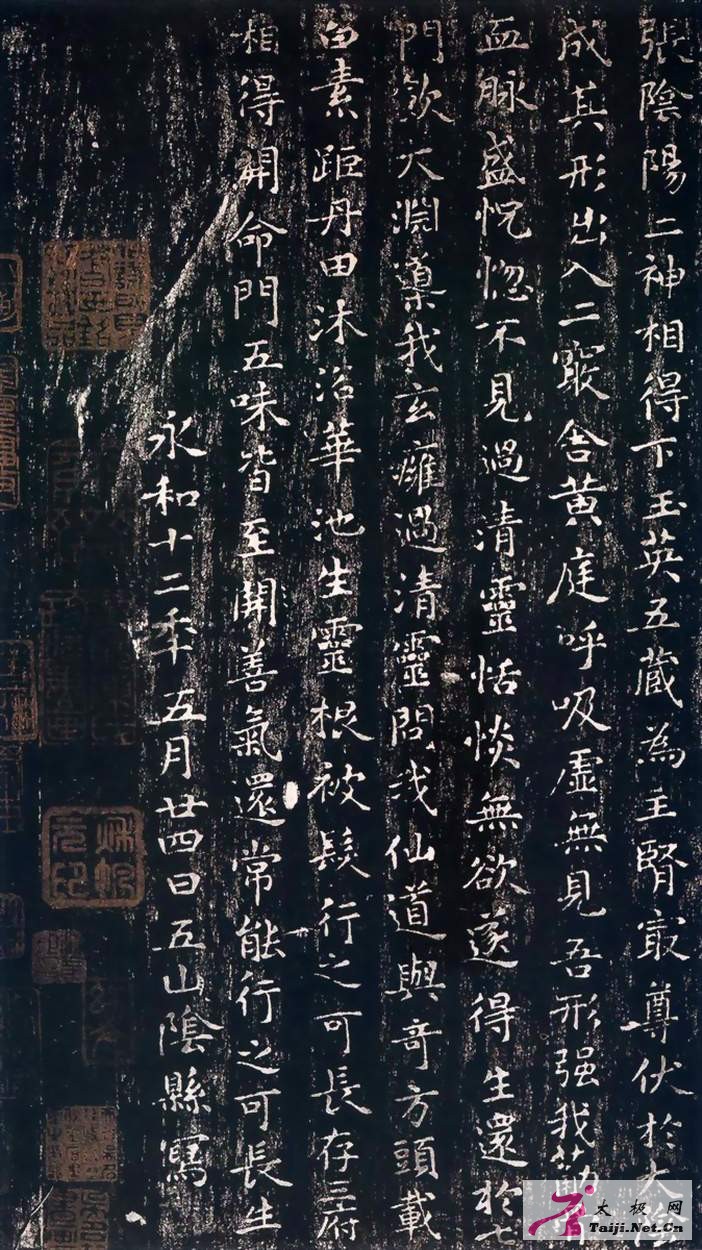 張陰陽二神相得下玉英五藏為主腎㝡尊伏於大陰
成其形出入二竅舍黃庭呼吸虛無見吾形强我筋骨
血脉盛怳惚不見過清靈恬惔無欲遂得生還於七
門飲大淵導我玄癰過清靈問我仙道與奇方頭載
白素距丹田沐浴華池生靈根被髮行之可長存三府
相得開命門五味皆至開善氣還常能行之可長生
永和十二年五月廿四日五山陰縣寫
太极网
Taiji.Net.Cn